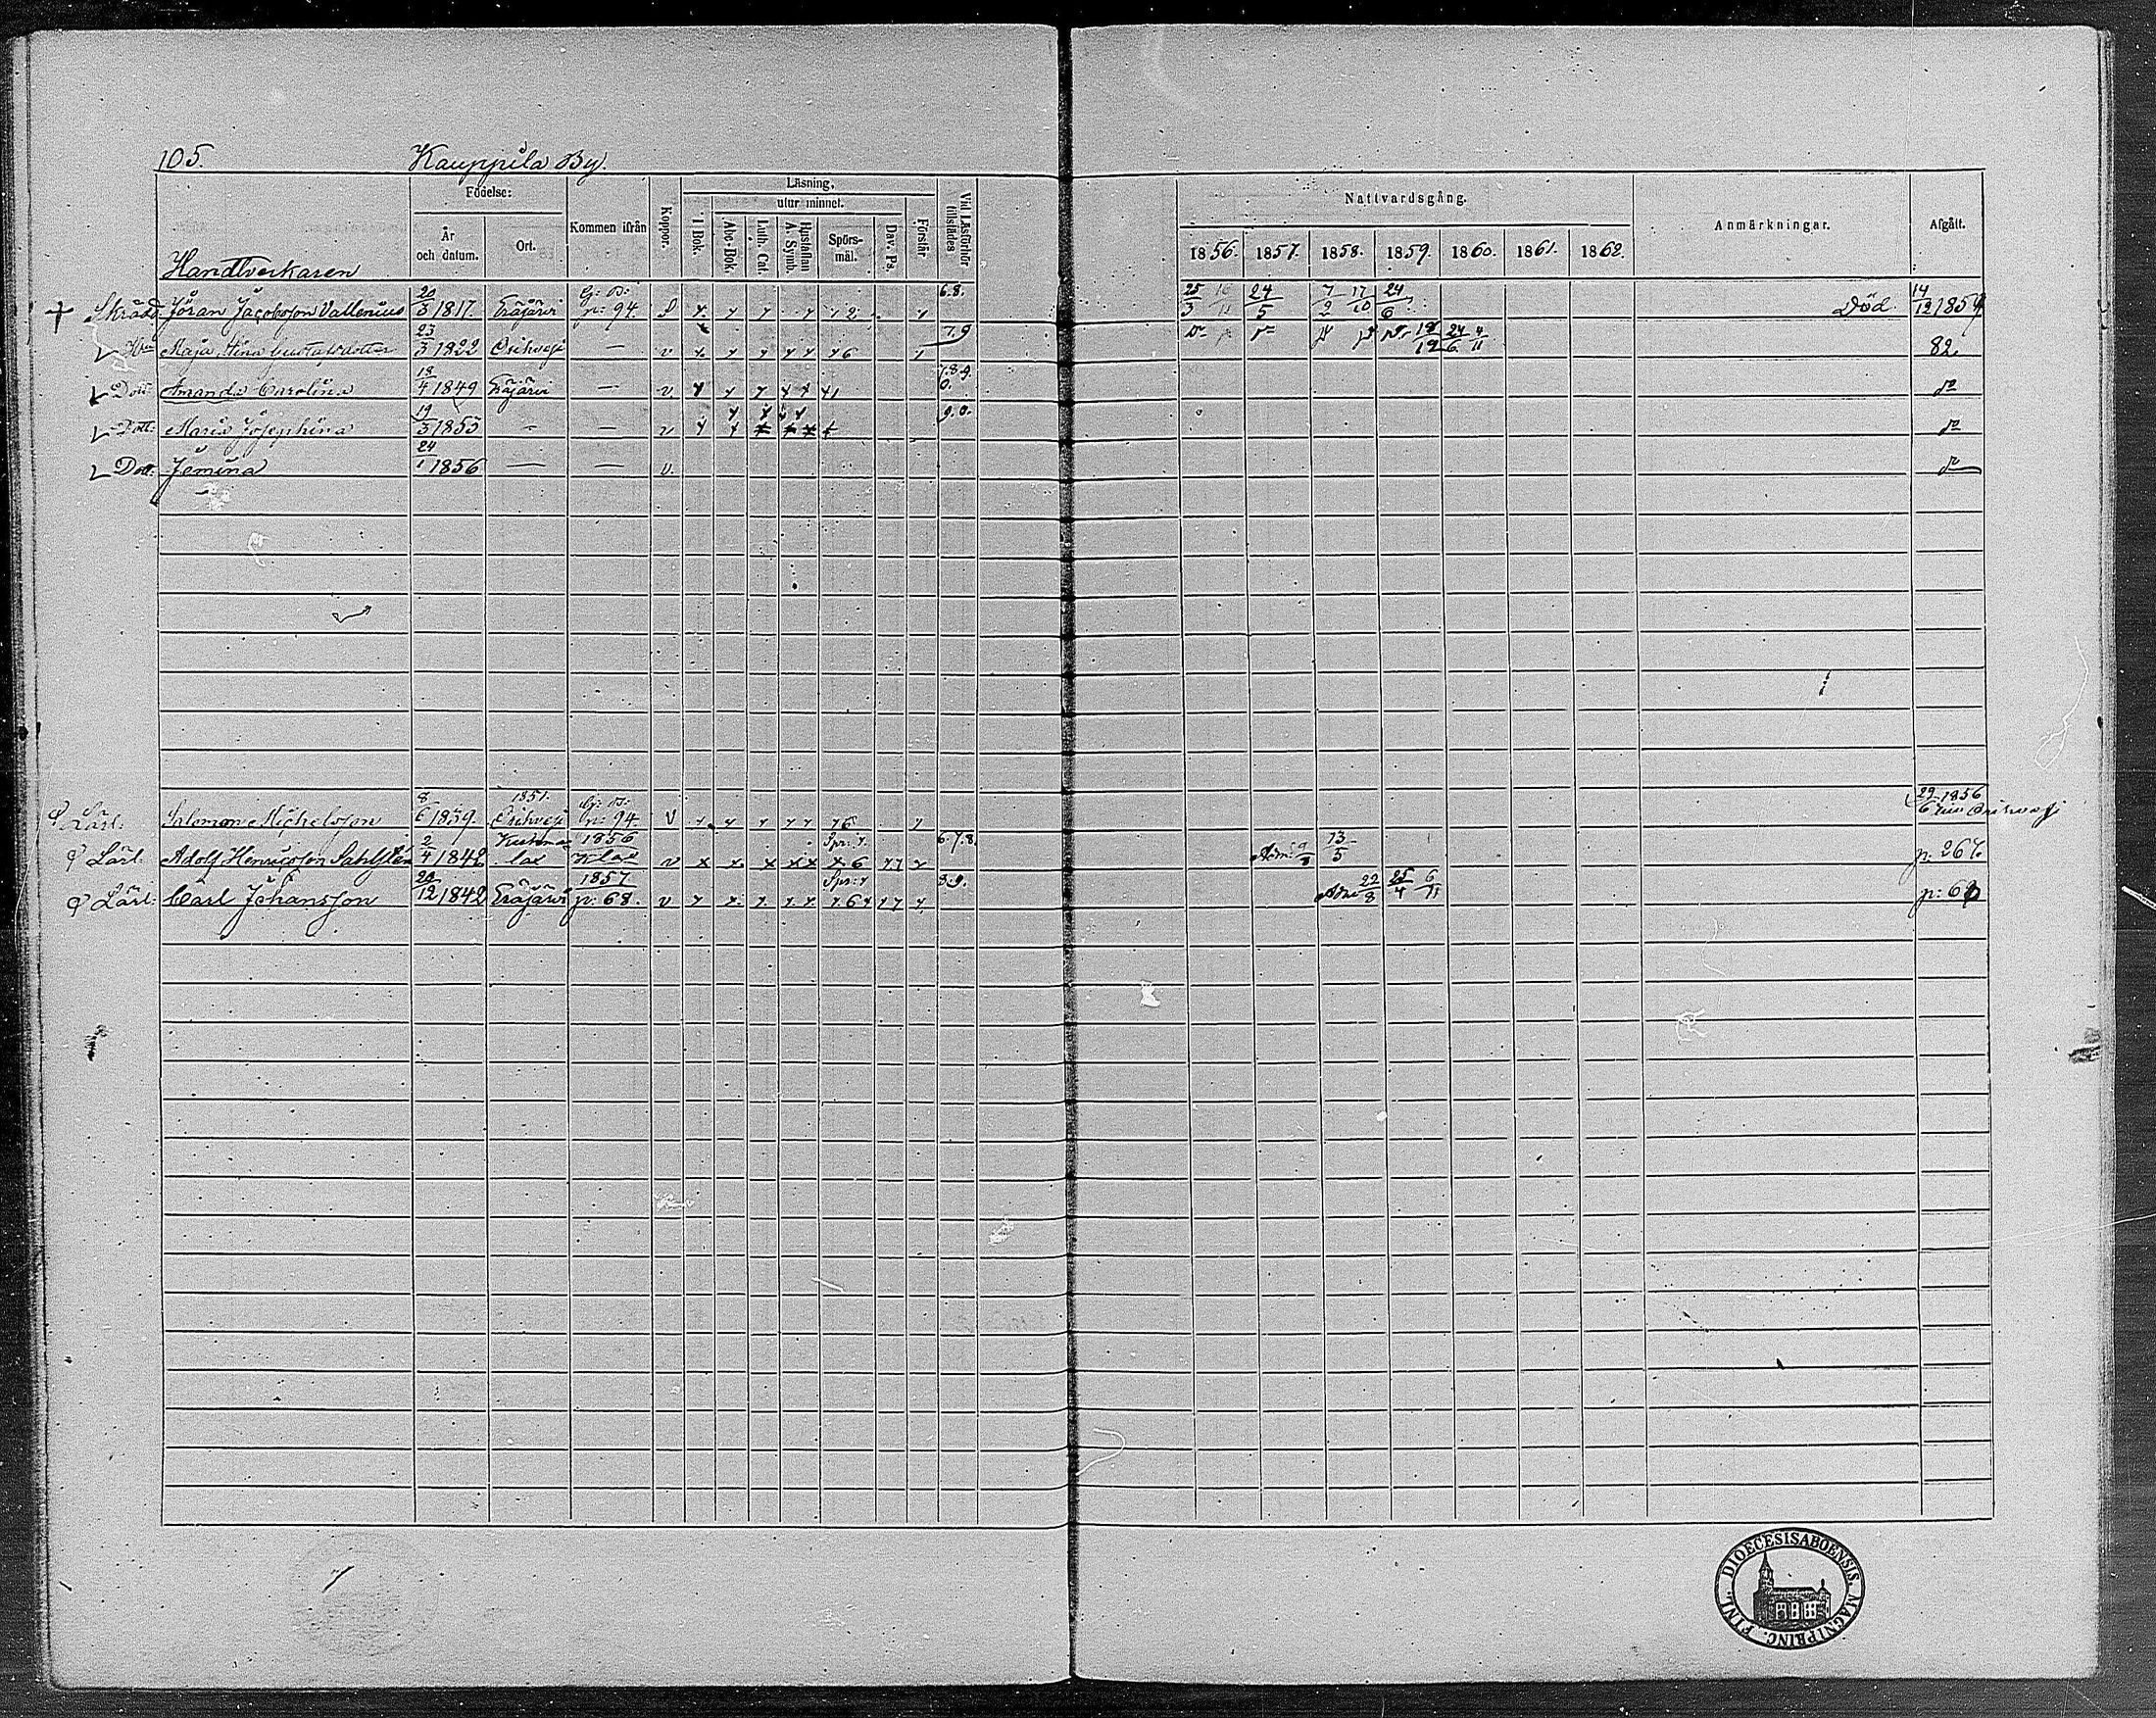 105. Kauppila By.
Födelse: Kommen ifrån Koppor. Läsning, utur minnet. I Bok. Abc-Bok. Luth. Cat. Hustaflan A. Symb. Spörsmål. Dav. Ps. Förstår Vid Läsförhör tillstädes
År och datum. Ort.
Nattvardsgång. Anmärkningar. Afgått.
1856. 1857. 1858. 1859. 1860. 1861. 1862.
Handtverkaren
Skrädd. Jöran Jacobsson Vallenius 20/3 1817 Eräjärvi p: 94. 6.8. 25/3 24/5 7/2 17/10 24/6 Död 14/12 1859
Hu Maja Stina Gustafsdotter 23/3 1822 Orihvesi — v 7.9 24/6 4/11 82.
Dott. Amanda Carolina 18/4 1849 Eräjärvi — v 7.8.9.0. do
Dott. Maria Josephina 19/3 1853 — — v 9.0. do
Dott. Jemina 24/1 1856 — — v. do
Lärl. Salomon Michelsson 8/6 1839 1851. Orihvesi 94. v 29/6 1856 Orihvesi
Lärl. Adolf Henricsson Sahlstén 2/4 1842 Kuhmalax 1856 K:lax v Spr: 6 6.7.8. Adm: 9/8 13/5 p: 267.
Lärl. Carl Johansson 20/12 1842 Eräjärvi 1857 p: 68. v Spr: 6 8.9. Adm 22/8 25/4 6/11 p: 60
DIOECESIS ABOENSIS. MAGNI PRINC. FINL.